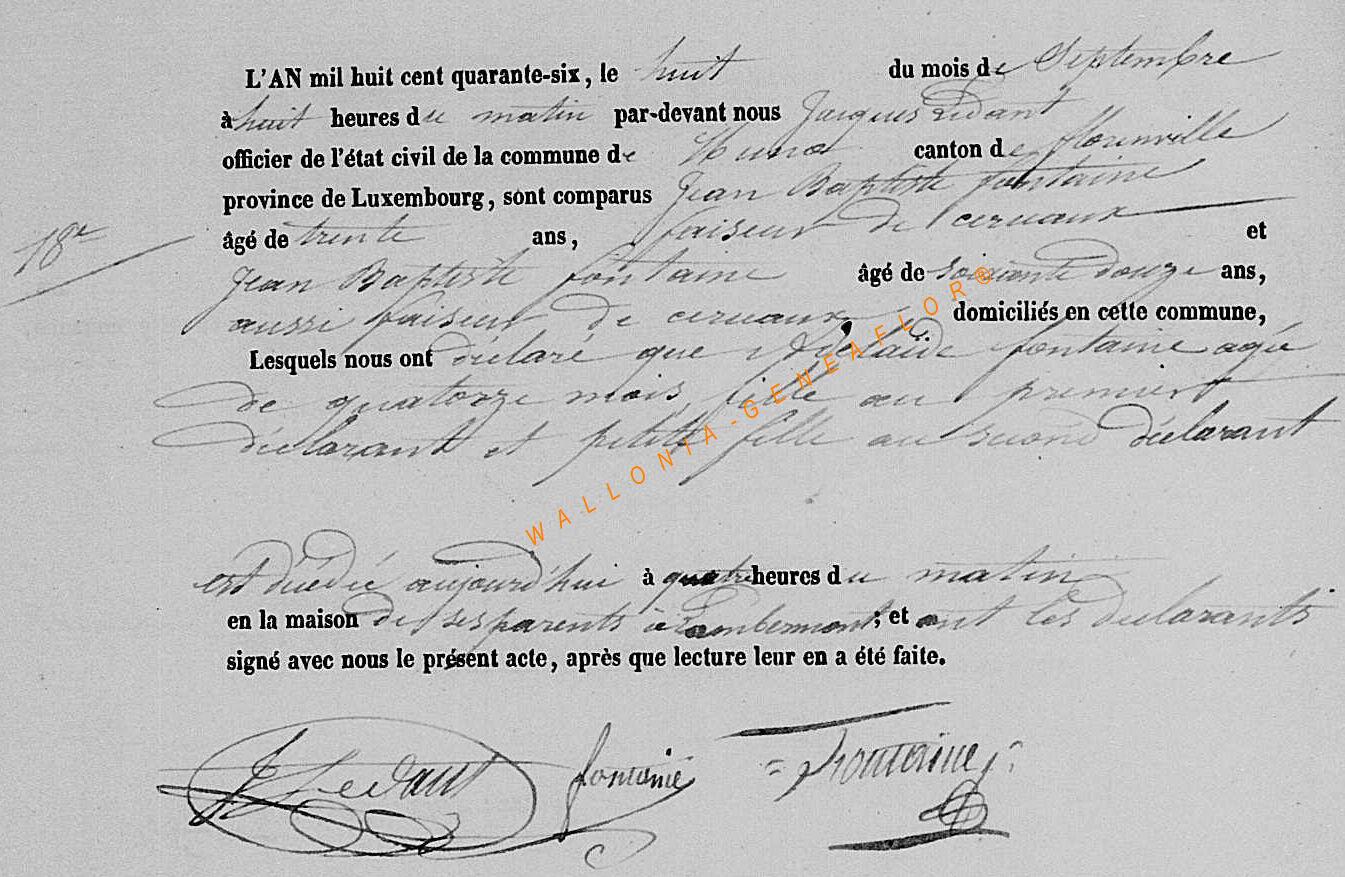 L'AN mil huit cent quarante-six, le huit du mois de Septembre
à huit heures du matin par-devant nous Jacques Ledant
officier de l'état civil de la commune de Muno canton de florenville
province de Luxembourg, sont comparus Jean Baptiste fontaine
18e
âgé de trente ans, faiseur de cerceaux et
Jean Baptiste fontaine âgé de soixante douze ans,
aussi faiseur de cerceaux domiciliés en cette commune,
Lesquels nous ont déclaré que Adélaïde fontaine agée
de quatorze mois, fille au premier
déclarant et petite fille au second déclarant
WALLONIA-GENEAFLOR®
est décédée aujourd'hui à quatre heures du matin
en la maison de ses parents à Lambermont ; et ont les déclarants
signé avec nous le présent acte, après que lecture leur en a été faite.
J Ledant fontaine = Fontaine j: